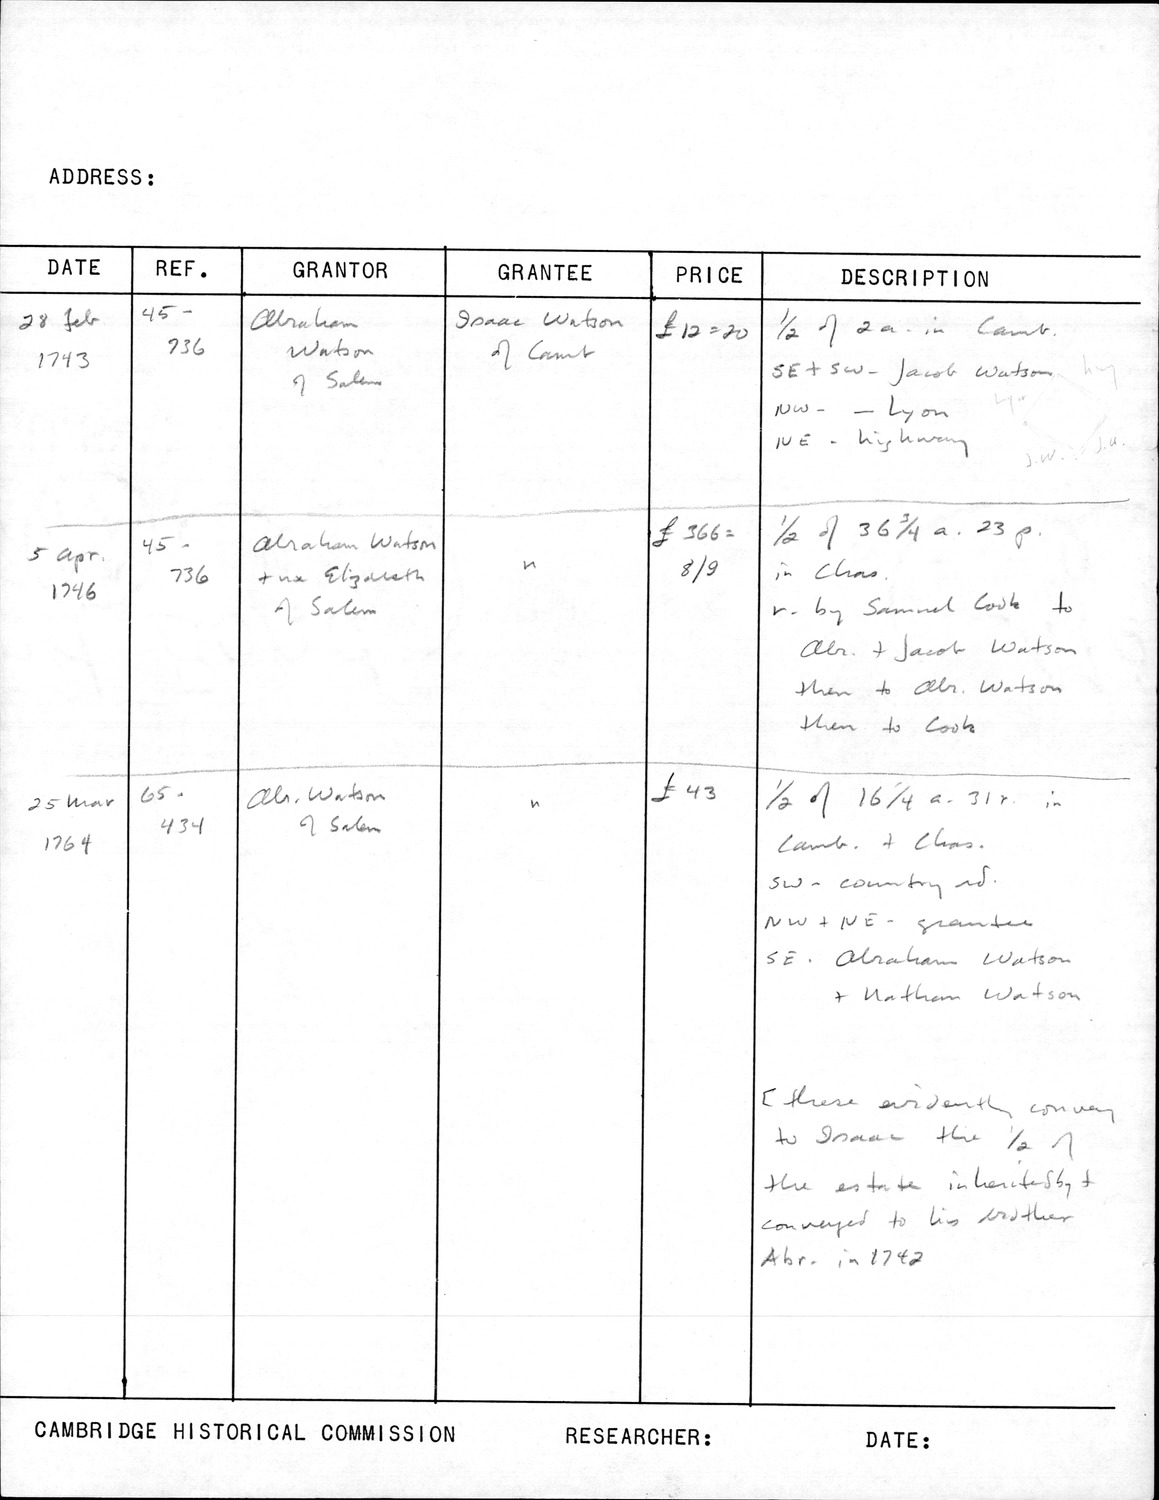 ADDRESS:
DATE REF. GRANTOR GRANTEE PRICE DESCRIPTION
28 feb 1743
45-736
Abraham
Watson
of Salem
Isaac Watson
of Camb
£12=20
1/2 of 2 a. in Camb.
SE + SW - Jacob Watson
NW - — Lyon
NE - highway
hwy
Lyon
J.W. J.W.
5 Apr.
1746
45-
736
Abraham Watson
+ ux Elizabeth
of Salem
"
£ 366=
8/9
1/2 of 36 3/4 a. 23 p.
in Chas.
r. by Samuel Cook to
Abr. + Jacob Watson
then to Abr. Watson
then to Cook
25 Mar
1764
65-
434
Abr. Watson
of Salem
"
£ 43
1/2 of 16 1/4 a. 31 r. in
Camb. + Chas.
SW - country rd.
NW + NE - grantee
SE. Abraham Watson
+ Nathan Watson
[ these evidently convey
to Isaac the 1/2 of
the estate inherited by +
conveyed to his brother
Abr. in 1742
CAMBRIDGE HISTORICAL COMMISSION RESEARCHER: DATE: